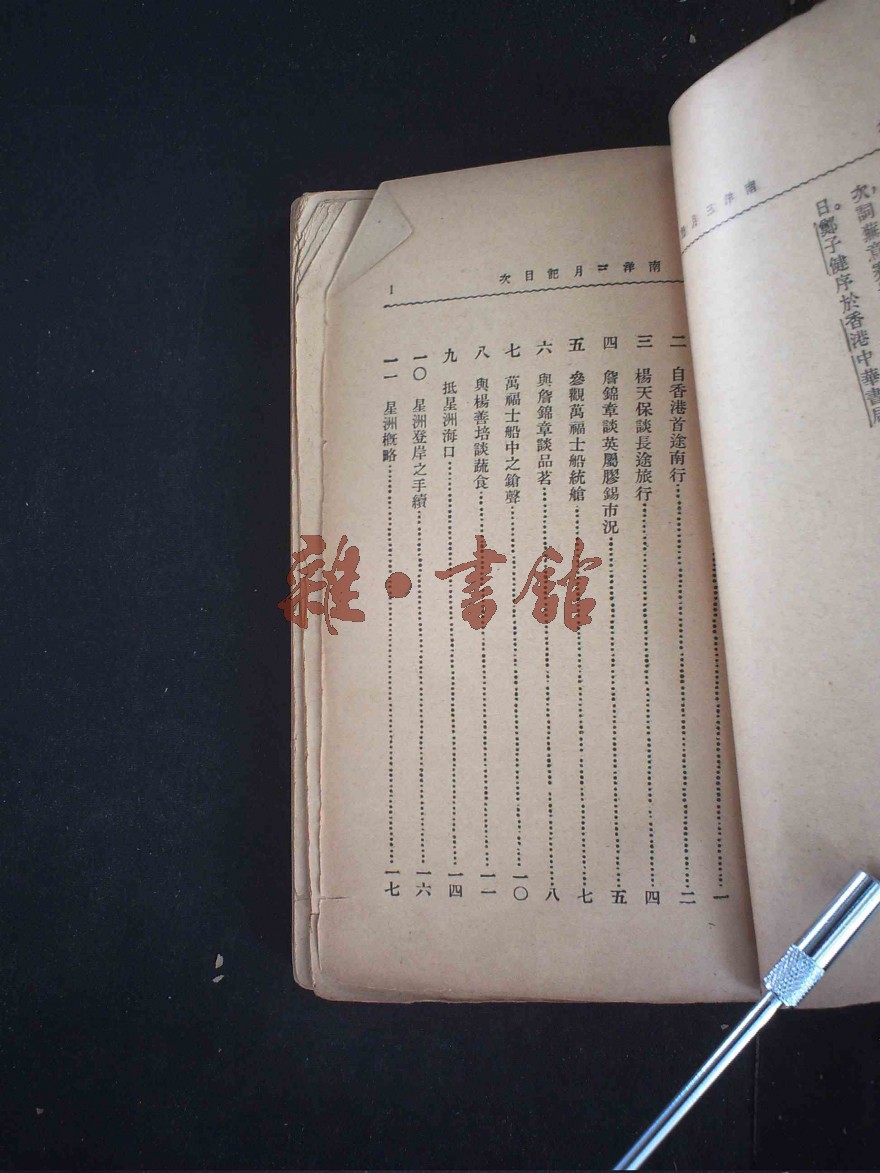 南洋三月
次，詞蕪意
日。鄭子健序於香港中華書局
南洋三月記目次
一
一
二 自香港首途南行……二
三 楊天保談長途旅行……四
四 詹錦章談英屬膠錫市況……五
五 參觀萬福士船統艙……七
六 與詹錦章談品茗……八
七 萬福士船中之鎗聲……一〇
八 與楊善培談蔬食……一一
九 抵星洲海口……一四
一〇 星洲登岸之手續……一六
一一 星洲槪略……一七
雜·書館